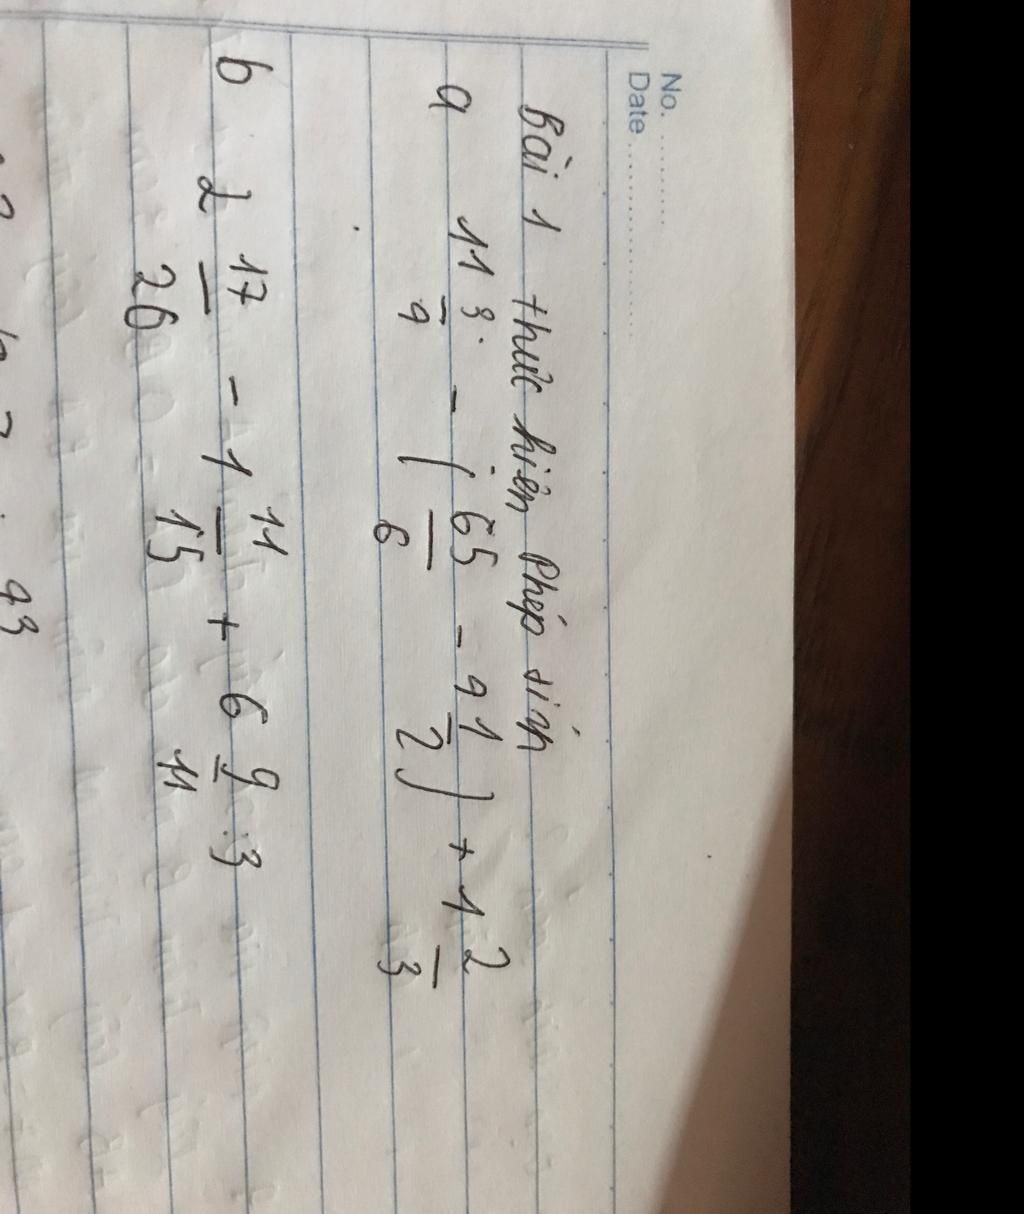 No. ..........
Date ......................
Bài 1 thực hiện phép sính
a 11 3/9 - ( 65/6 - 9 1/2 ) + 1 2/3
b 2 17/26 - 1 11/15 + 6 9/11 : 3
93